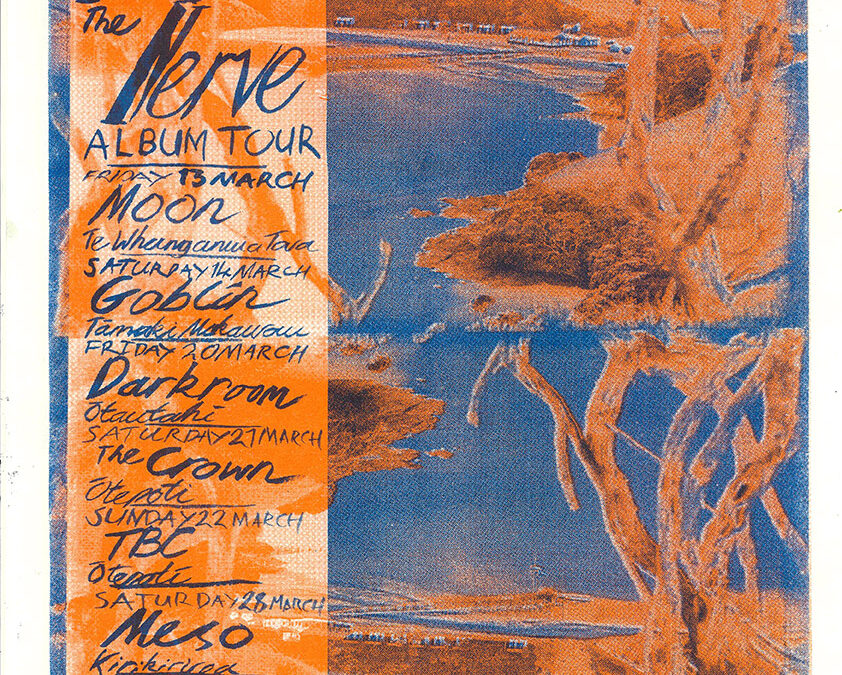 The
Nerve
ALBUM TOUR
FRIDAY 13 MARCH
Moon
Te Whanganui a Tara
SATURDAY 14 MARCH
Goblin
Tāmaki Makaurau
FRIDAY 20 MARCH
Darkroom
Ōtautahi
SATURDAY 21 MARCH
The Crown
Ōtepoti
SUNDAY 22 MARCH
TBC
Ōtepoti
SATURDAY 28 MARCH
Meso
Kirikiriroa